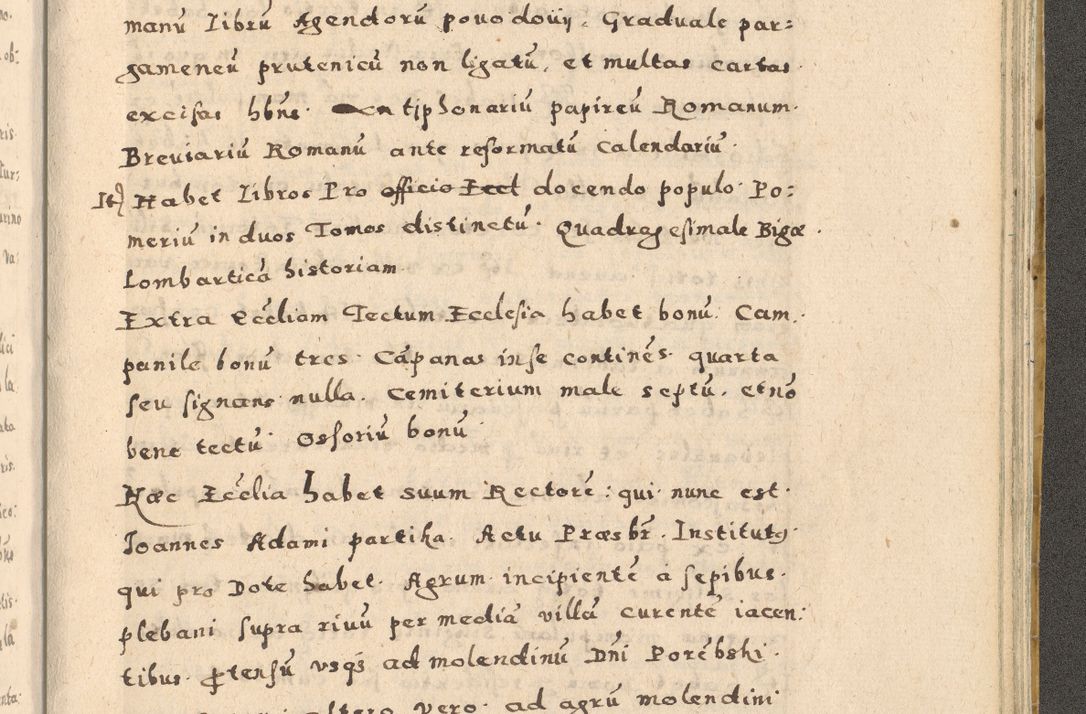 manū Librū Agendorū pouodouÿ. Graduale par:
gameneū prutenicū non ligatū, et multas cartas
excisas hbñs. Antiphonariū papireū Romanum.
Breuiariū Romanū ante reformatū Calendariū.
It) Habet Libros Pro officio Eccl docendo populo. Po:
meriū in duos Tomos distinctū. Quadragesimale Bigæ.
Lombarticā historiam.
Extra Eccĺiam Tectum Ecclesia habet bonū. Cam,
panile bonū tres. Cāpanas in se continēs. quarta
seu signans nulla. Cemiterium male septū. et nō
bene tectū. Ossoriū bonū.
Hæc Eccĺia habet suum Rectorē: qui nunc est.
Joannes Adami partika. Actu Præsbr̄. Institutꝯ
qui pro Dote habet. Agrum incipientē a sepibus.
plebani supra riuū per mediā villā curentē iacen:
tibus. ꝓtensū vsqꝫ ad molendinū Dñi Porēbski.
altero vero. ad agrū molendini